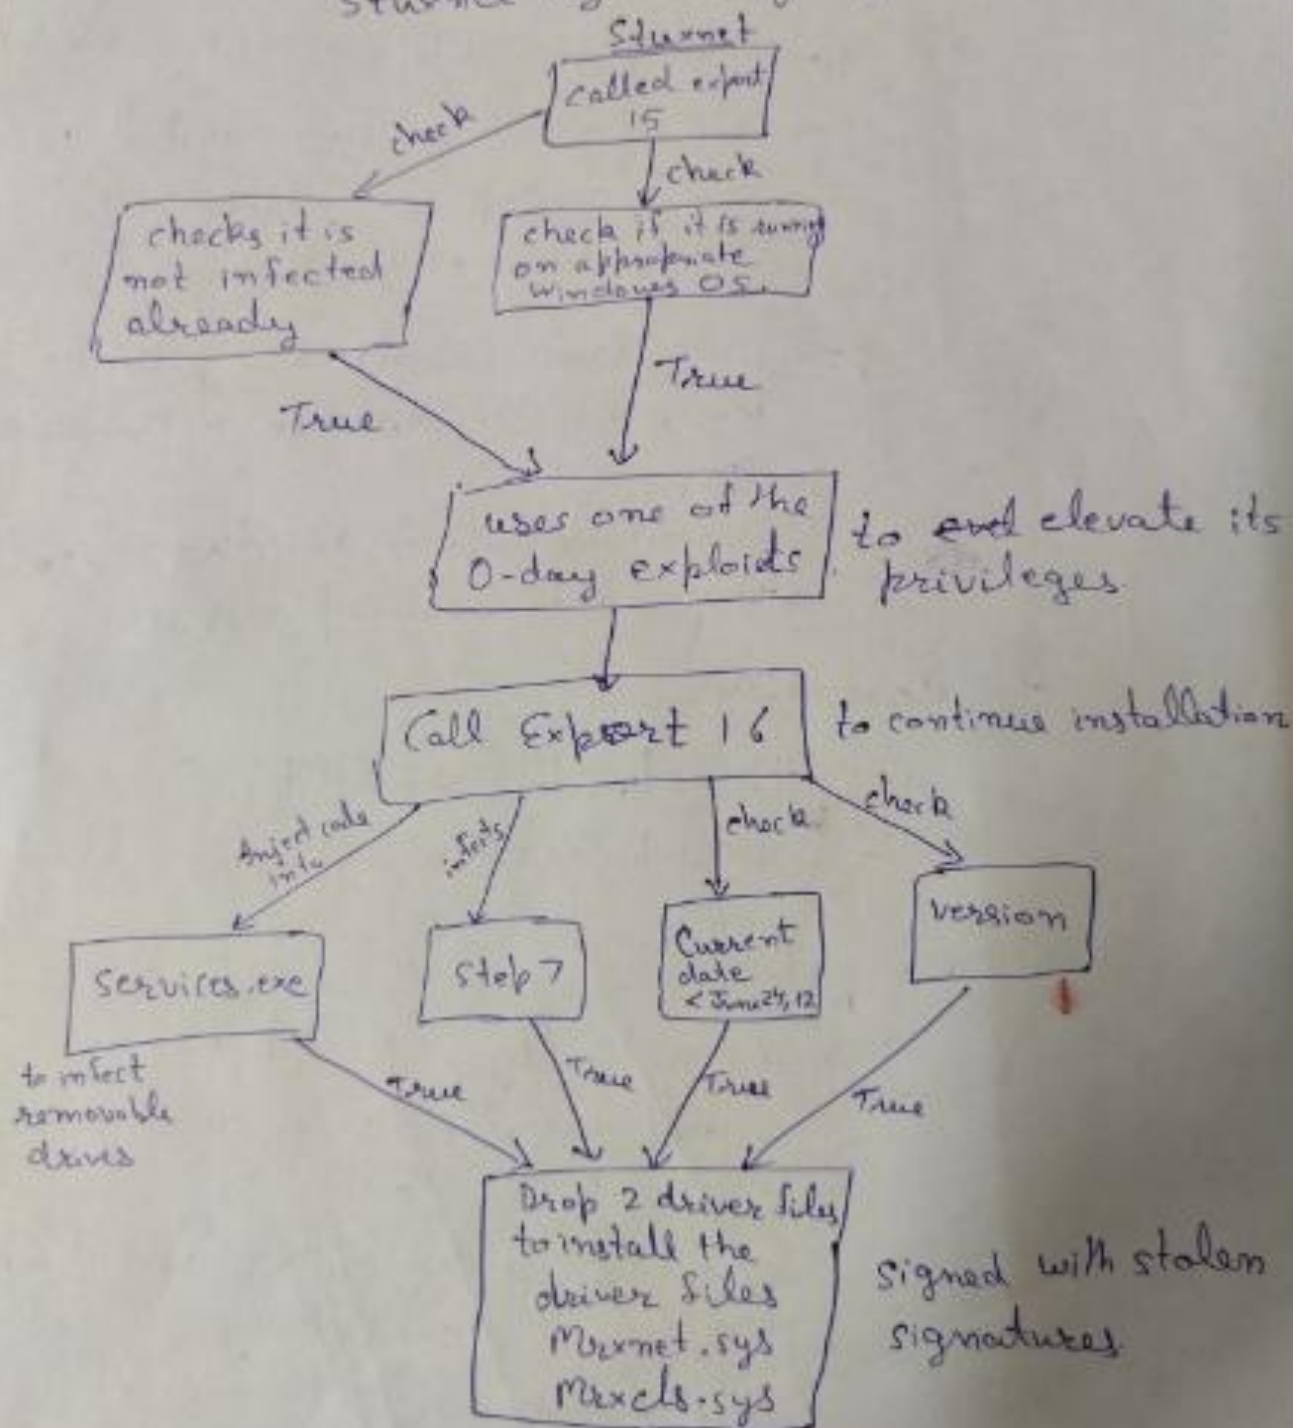 Stuxnet
Called export
15
check
check
checks it is
not infected
already
check if it is running
on appropriate
Windows OS.
True
True
uses one of the
0-day exploids
to elevate its
privileges
Call Export 16
to continue installation
Inject code
into
infects
check
check
services.exe
Step 7
Current
date
< June 24, 12
version
to infect
removable
drives
True
True
True
True
Drop 2 driver files
to install the
driver files
Mrxnet.sys
Mrxcls.sys
signed with stolen
signatures